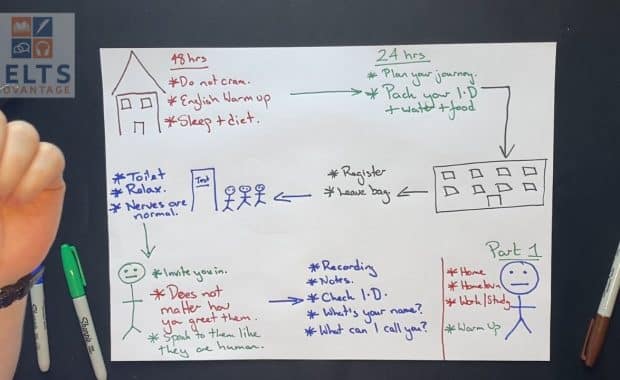 ELTS
DVANTAGE
48 hrs
* Do not cram.
* English Warm up
* Sleep + diet.
24 hrs
* Plan your journey.
* Pack your I.D
+ water + food
* Register
* Leave bag.
Test
* Toilet
* Relax.
* Nerves are
normal.
* Invite you in.
* Does not
matter how
you greet them.
* Speak to them like
they are human.
* Recording
* Notes.
* Check I.D.
* What's your name?
* What can I call you?
Part 1
* Home
* Hometown
* Work/Study
* Warm Up
Sharpie